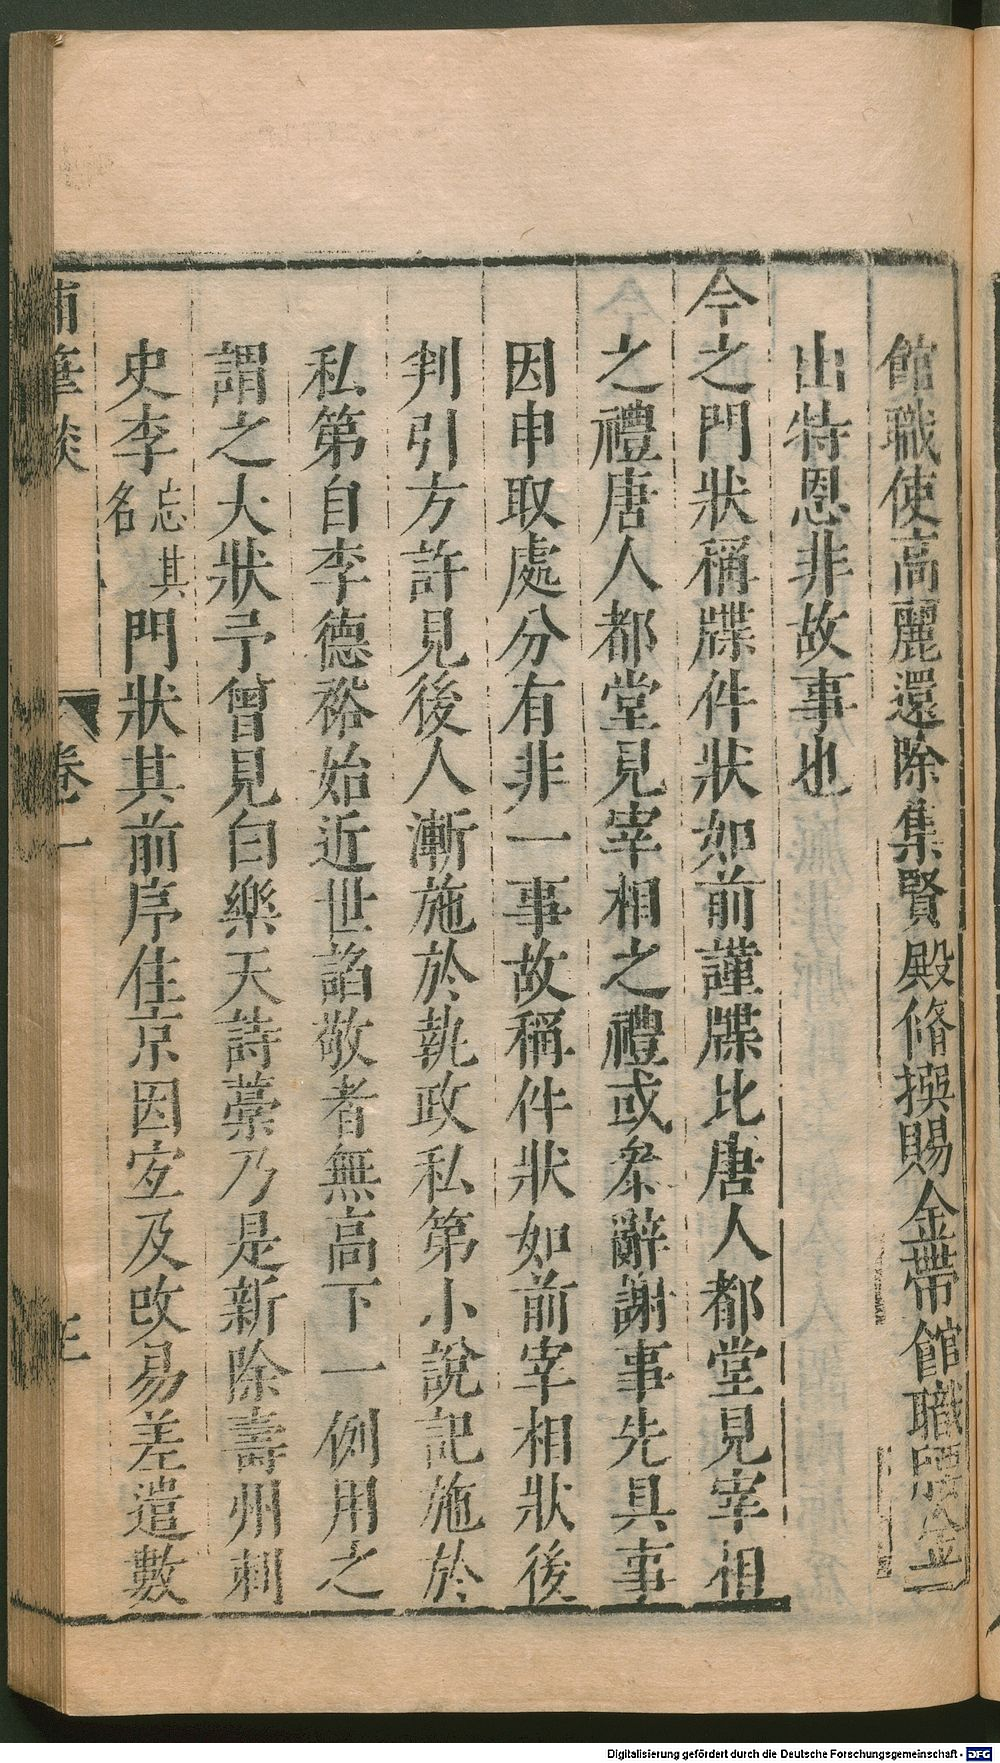 館職使高麗還除集賢殿脩撰賜金帶館職腰金
出特恩非故事也
今之門狀稱牒件狀如前謹牒比唐人都堂見宰相
之禮唐人都堂見宰相之禮或叅辭謝事先具事
因申取處分有非一事故稱件狀如前宰相狀後
判引方許見後人漸施於執政私第小說記施於
私第自李德裕始近世諂敬者無高下一例用之
謂之大狀予曾見白樂天詩藁乃是新除壽州刺
史李忘其名門狀其前序住京因宐及改易差遣數
補筆談 卷一 三
Digitalisierung gefördert durch die Deutsche Forschungsgemeinschaft - DFG